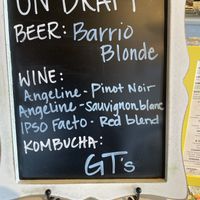 ON DRAFT
BEER: Barrio
Blonde
WINE:
Angeline - Pinot Noir
Angeline - Sauvignon blanc
IPSO Facto - Red blend
KOMBUCHA:
GT's